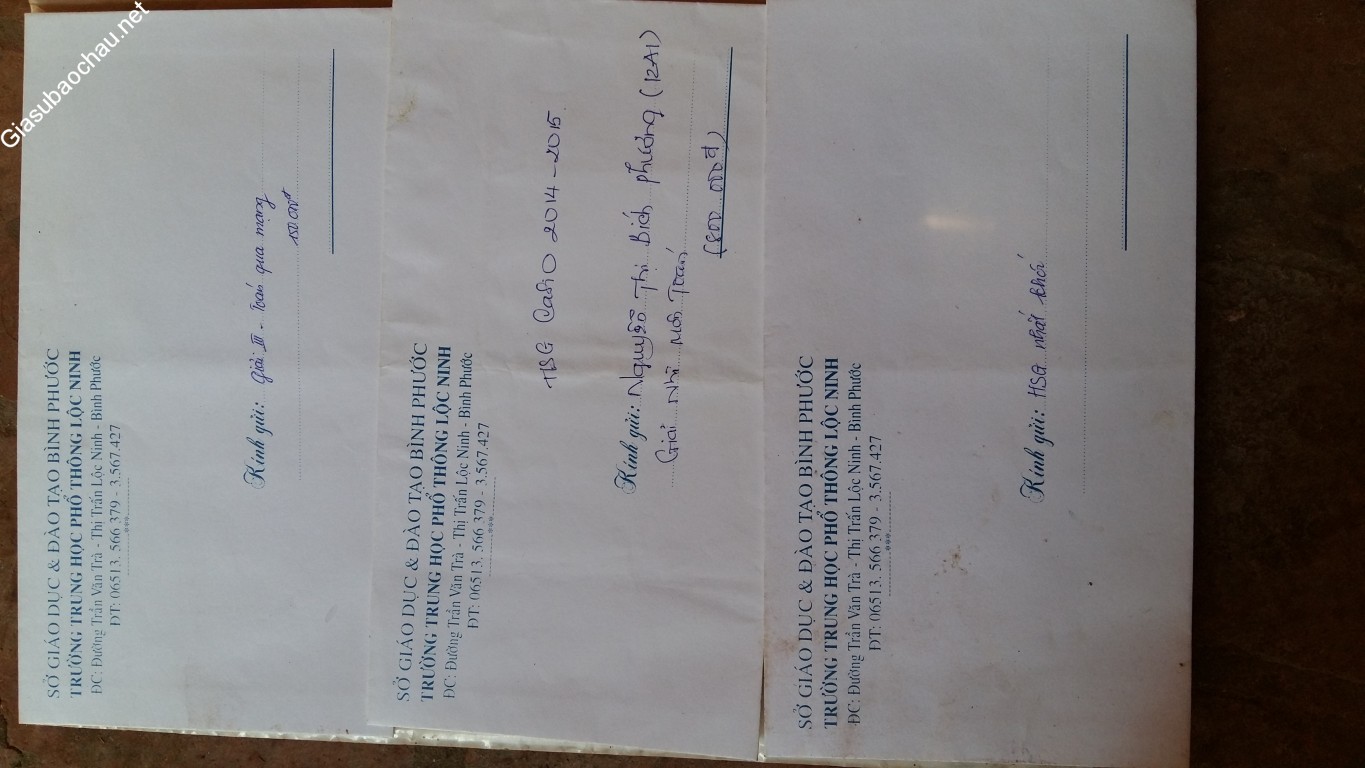 Giasubaochau.net
SỞ GIÁO DỤC & ĐÀO TẠO BÌNH PHƯỚC
TRƯỜNG TRUNG HỌC PHỔ THÔNG LỘC NINH
ĐC: Đường Trần Văn Trà - Thị Trấn Lộc Ninh - Bình Phước
ĐT: 06513. 566 379 - 3.567.427
Kính gửi: Giải III - Toán qua mạng
150 000đ
SỞ GIÁO DỤC & ĐÀO TẠO BÌNH PHƯỚC
TRƯỜNG TRUNG HỌC PHỔ THÔNG LỘC NINH
ĐC: Đường Trần Văn Trà - Thị Trấn Lộc Ninh - Bình Phước
ĐT: 06513. 566 379 - 3.567.427
HSG Casio 2014 - 2015
Kính gửi: Nguyễn Thị Bích Phương (12A1)
Giải Nhì Môn Toán
(800 000đ)
SỞ GIÁO DỤC & ĐÀO TẠO BÌNH PHƯỚC
TRƯỜNG TRUNG HỌC PHỔ THÔNG LỘC NINH
ĐC: Đường Trần Văn Trà - Thị Trấn Lộc Ninh - Bình Phước
ĐT: 06513. 566 379 - 3.567.427
Kính gửi: HSG nhất khối